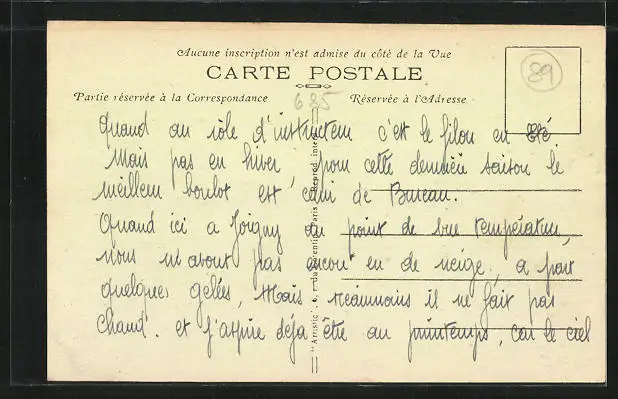 Aucune inscription n'est admise du côté de la Vue
CARTE POSTALE
89
Partie réservée à la Correspondance
685
Réservée à l'Adresse
Quand au rôle d'instructeur c'est le filon en Eté.
Mais pas en hiver, pour cette dernière saison le
meilleur boulot est celui de Bureau.
Quand ici a Joigny au point de vue température,
nous n'avont pas encore eu de neige, a part
quelques gelées, Mais néanmoins il ne fait pas
Chaud. et j'aspire déja être au printemps, car le ciel
"Artistic"
Paris
Reprod. inter